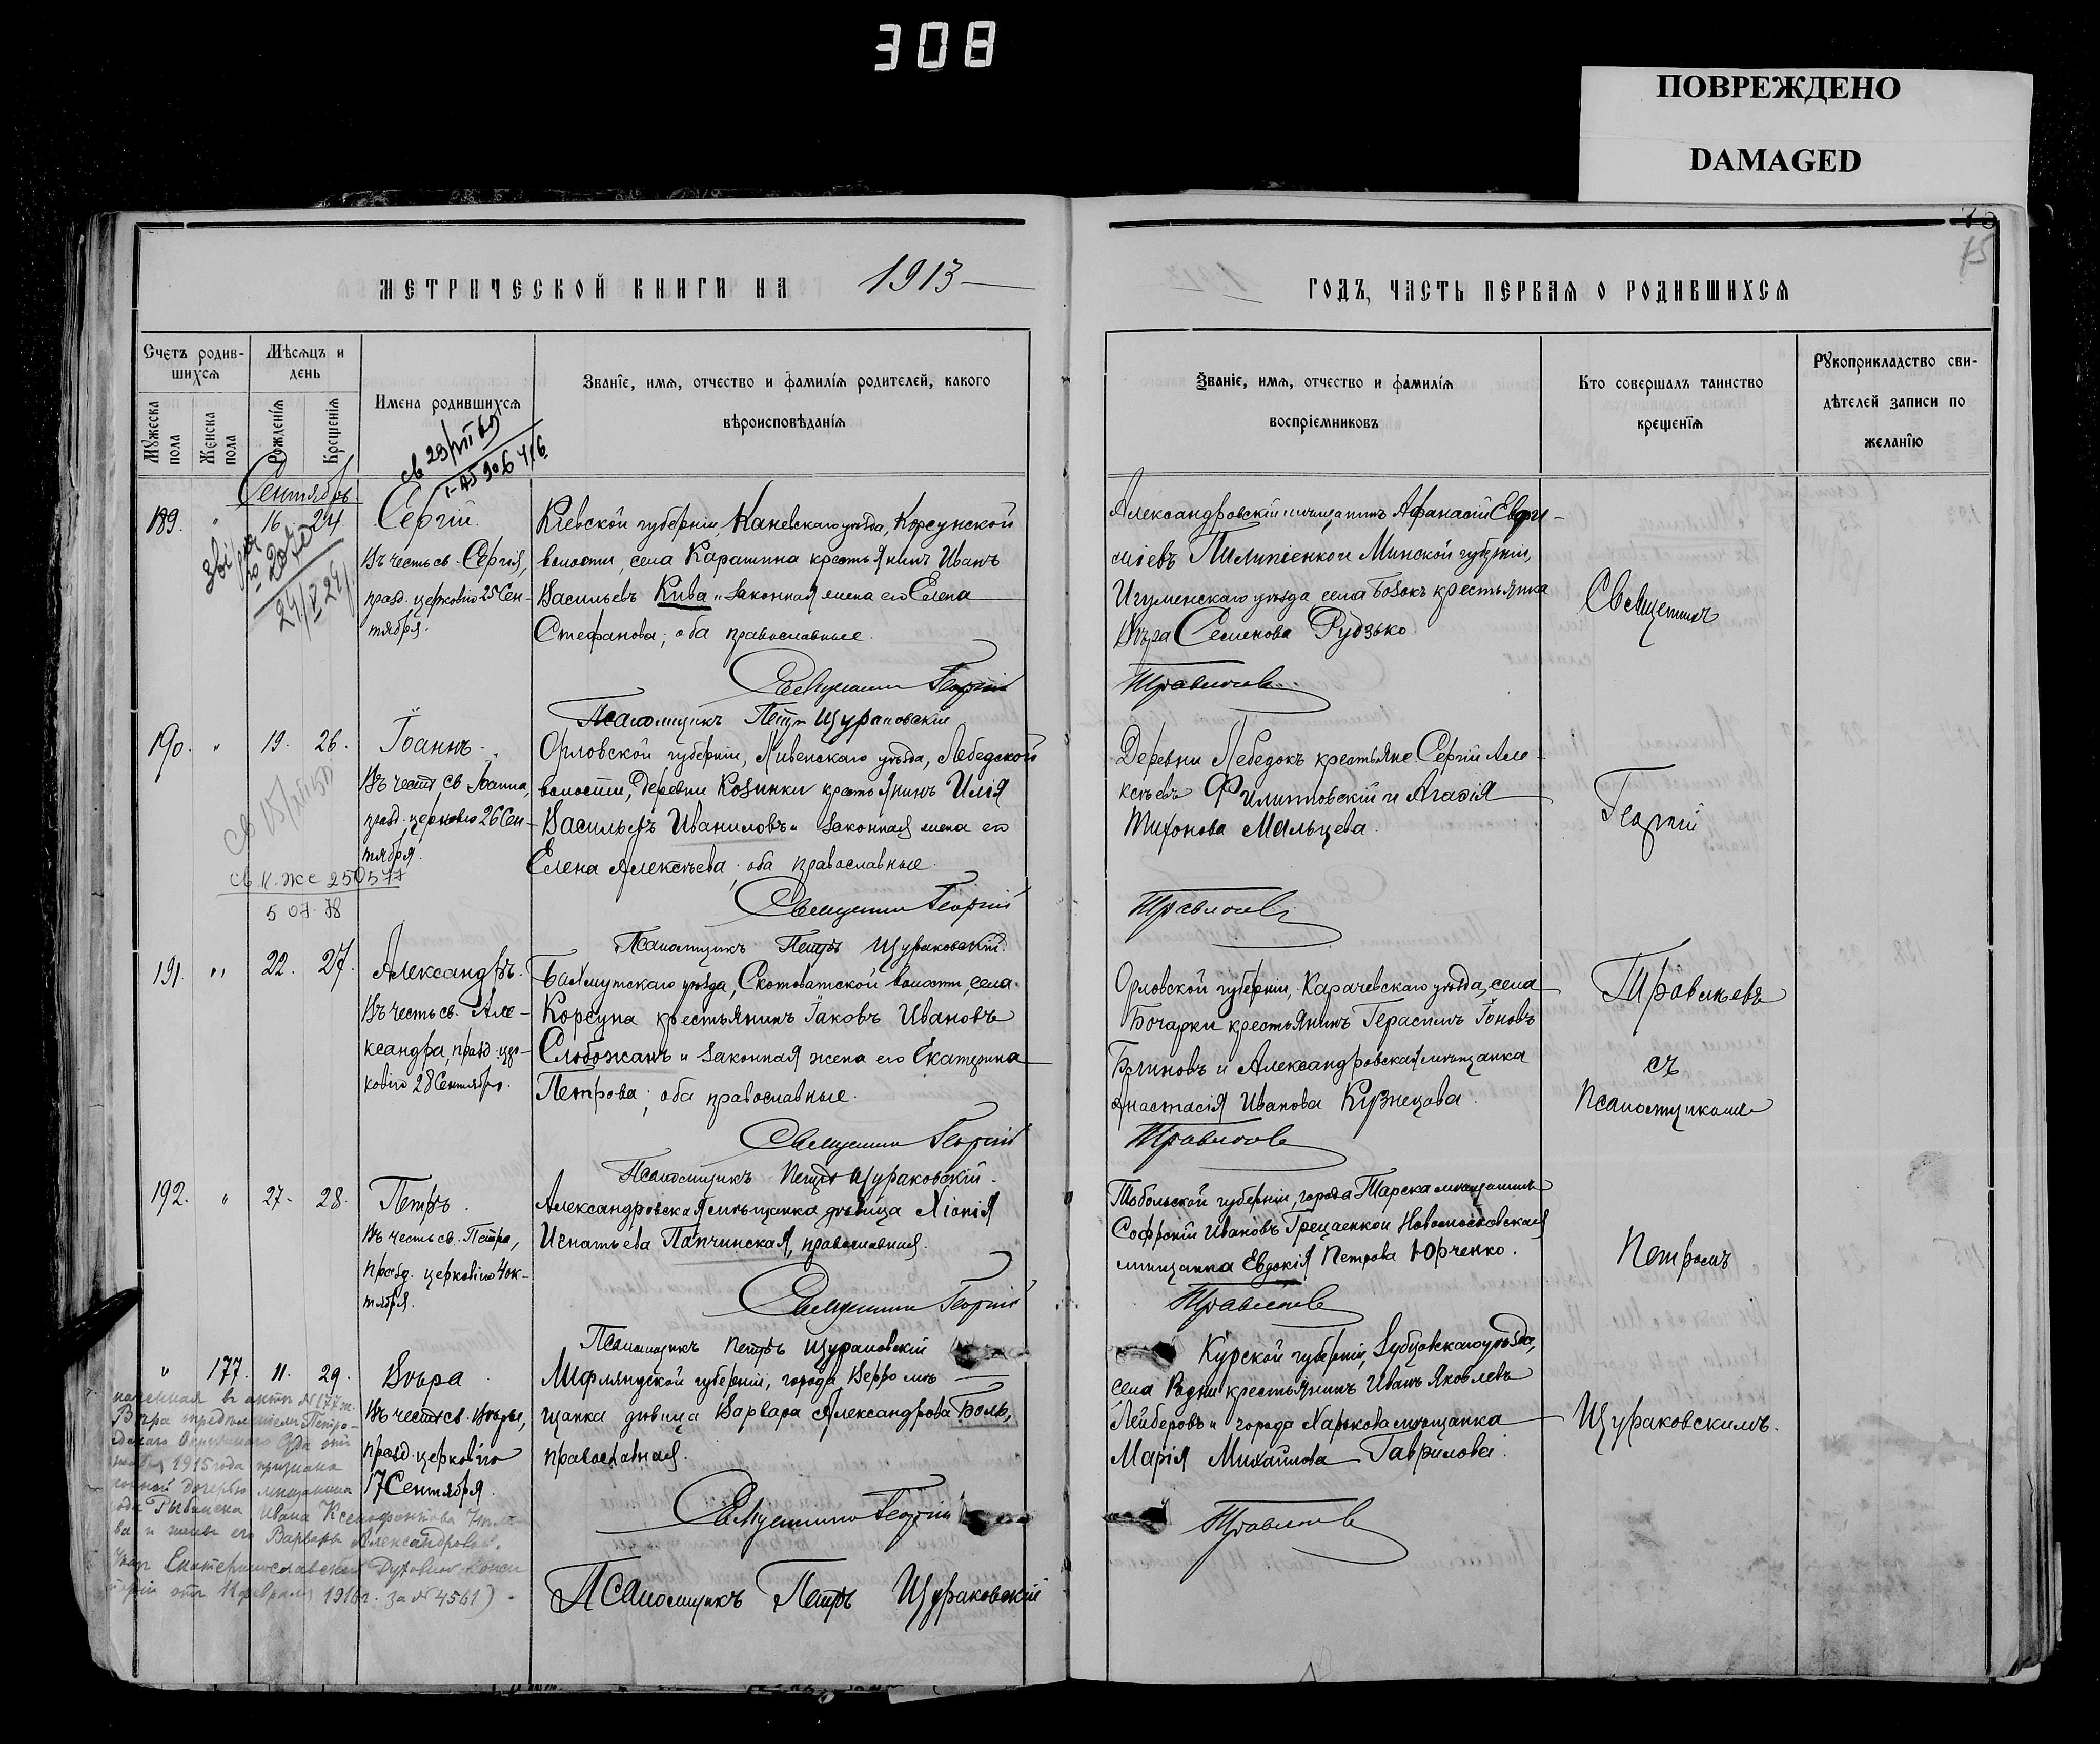 308
ПОВРЕЖДЕНО
DAMAGED
75
МЕТРИЧЕСКОЙ КНИГИ НА 1913
ГОДЪ, ЧАСТЬ ПЕРВАЯ О РОДИВШИХСЯ
Счетъ родив-
шихся
Мѣсяцъ и
день
Мужеска
пола
Женска
пола
Рожденія
Крещенія
Имена родившихся
Званіе, имя, отчество и фамилія родителей, какого
вѣроисповѣданія
Званіе, имя, отчество и фамилія
воспріємниковъ
Кто совершалъ таинство
крещенія
Рукоприкладство сви-
дѣтелей записи по
желанію
Сентябрь
189. " 16 24. Сергій.
Въ честь св. Сергія,
празд. церковію 25 Сен-
тября.
Кіевской губерніи, Каневскаго уѣзда, Корсунской
волости, села Карашина крестьянинъ Иванъ
Васильевъ Кива и законная жена его Елена
Стефанова; оба православные.
Священникъ Георгій
Псаломщикъ Петръ Щураковскій
Александровскій мѣщанинъ Афанасій Евфи-
міевъ Пилипенко и Минской губерніи,
Игуменскаго уѣзда села Бозокъ крестьянка
Вѣра Семенова Рудзько.
Правиковъ
Священникъ
190. " 19. 26. Іоаннъ.
Въ честь св. Іоанна,
празд. церковію 26 Сен-
тября.
св. II. ЖС 250577
5 07. 78
Орловской губерніи, Ливенскаго уѣзда, Лебедской
волости, деревни Козинки крестьянинъ Илія
Васильевъ Иваниловъ и законная жена его
Елена Алексѣева; оба православные.
Священникъ Георгій
Псаломщикъ Петръ Щураковскій.
Деревни Лебедокъ крестьяне Сергій Але-
ксѣевъ Филипповскій и Агафія
Тихонова Мальцева.
Георгій
191. " 22. 27. Александръ.
Въ честь св. Але-
ксандра, празд. цер-
ковію 28 Сентября.
Бахмутскаго уѣзда, Скотоватской волости, села
Корсуна крестьянинъ Іаковъ Ивановъ
Слобожанъ и законная жена его Екатерина
Петрова; оба православные.
Священникъ Георгій
Псаломщикъ Петръ Щураковскій.
Орловской губерніи, Карачевскаго уѣзда, села
Бочарки крестьянинъ Герасимъ Іоновъ
Блиновъ и Александровская мѣщанка
Анастасія Иванова Кузнецова.
съ
Псаломщикомъ
192. " 27. 28. Петръ.
Въ честь св. Петра,
празд. церковію 4 ок-
тября.
Александровская мѣщанка дѣвица Хіонія
Игнатьева Папчинская, православная.
Священникъ Георгій
Псаломщикъ Петръ Щураковскій
Тобольской губерніи, города Тарска мѣщанинъ
Софроній Ивановъ Грещенко и Новомосковская
мѣщанка Евдокія Петрова Юрченко.
Петромъ
" 177. 11. 29. Вѣра.
Въ честь св. Вѣры,
празд. церковію
17 Сентября.
Лифляндской губерніи, города Верро мѣ-
щанка дѣвица Варвара Александрова Боль,
православная.
Священникъ Георгій
Псаломщикъ Петръ Щураковскій
Курской губерніи, Зубцовскаго уѣзда,
села Родни крестьянинъ Иванъ Яковлевъ
Лейберовъ и города Харькова мѣщанка
Марія Михайлова Гаврилова.
Щураковскимъ.
въ актѣ № 177 м.
Вѣра опредѣленіемъ Петро-
Окружного Суда отъ
1915 года признана
дочерью мѣщанина
Рыбинска Ивана Ксенофонтова
и жены его Варвары Александровой.
Екатеринославской Духовной Конси-
отъ 11 февраля 1916 г. за № 4561)